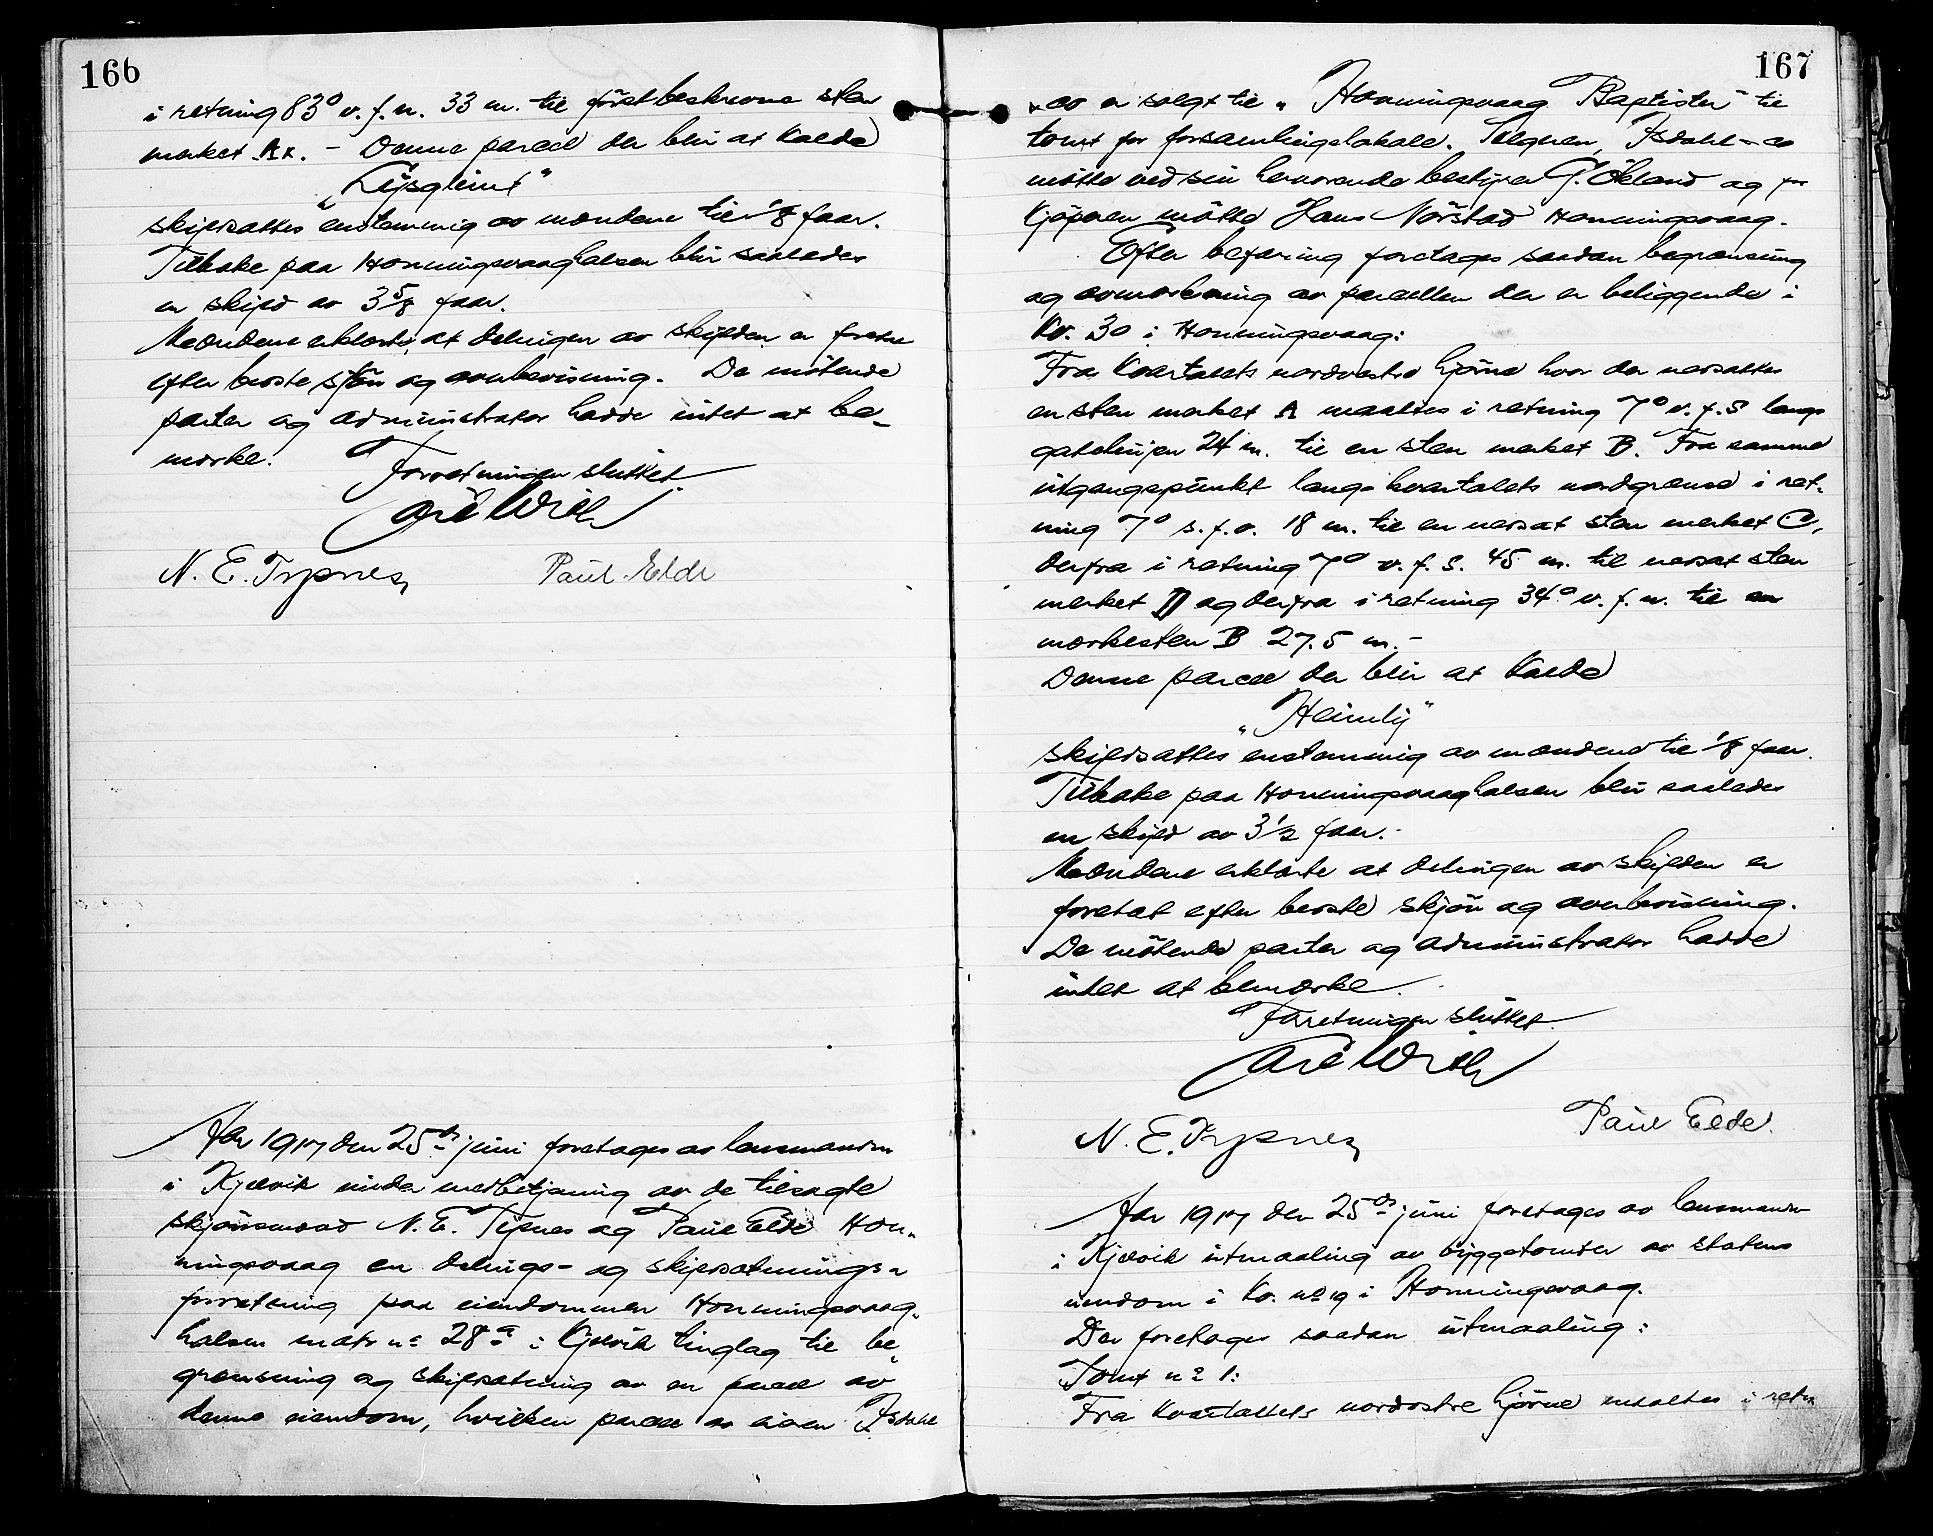 166
i retning 83° v. f. n. 33 m. til förstbeskrevne sten
merket Ax. – Denne parcel der blir at kalde
„Lysglimt"
skyldsattes enstemmig av mændene til 1/8 faar.
Tilbake paa Honningsvaaghalsen blir saaledes
en skyld av 3 5/8 faar.
Mændene erklærte, at delingen av skylden er foreta
efter bedste skjön og overbevisning. De mötende
parter og administrator hadde intet at be-
merke.
Forretningen sluttet.
N. E. Typnes
Paul Elde
Aar 1917 den 25de juni foretages av lensmanden
i Kjelvik under medbetjening av de tilsagte
skjönsmænd N. E. Tipnes og Paul Elde Hon-
ningsvaag en delings- og skyldsætnings-
forretning paa eiendommen Honningsvaag-
halsen matr nr 28a i Kjelvik tinglag til be-
grænsning og skyldsætning av en parcel av
denne eiendom, hvilken parcel av eieren Isdahl
167
& co er solgt til „Honningsvaag Baptister" til
tomt for forsamlingslokale. Selgeren, Isdahl & co
mötte ved sin herværende bestyrer G. Ökland og for
Kjöperen mötte Hans Nörstad Honningsvaag.
Efter befaring foretages saadan begrænsning
og avmerkning av parcellen der er beliggende i
Kv. 30 i Honningsvaag:
Fra Kvartalets nordvestre hjörne hvor der nedsattes
en sten merket A maaltes i retning 7° v. f. S langs
gatelinjen 24 m. til en sten merket B. Fra samme
utgangspunkt langs kvartalets nordgrense i ret-
ning 7° s. f. o. 18 m. til en nedsat sten merket C,
derfra i retning 7° v. f. S. 45 m. til nedsat sten
merket D og derfra i retning 34° v. f. n. til en
merkesten B 27.5 m. –
Denne parcel der blir at kalde
„Heimly"
skyldsattes enstemmig av mændene til 1/8 faar.
Tilbake paa Honningsvaaghalsen blir saaledes
en skyld av 3 1/2 faar. -
Mændene erklærte at delingen av skylden er
foretat efter bedste skjön og overbevisning.
De mötende parter og administrator hadde
intet at bemerke.
Forretningen sluttet.
N. E. Typnes
Paul Elde.
Aar 1917 den 25de juni foretages av lensmanden
i Kjelvik utmaaling av byggetomter av statens
eiendom i Kv. no 19 i Honningsvaag.
Der foretages saadan utmaaling:
Tomt no 1:
Fra Kvartalets nordostre hjörne maaltes i retn